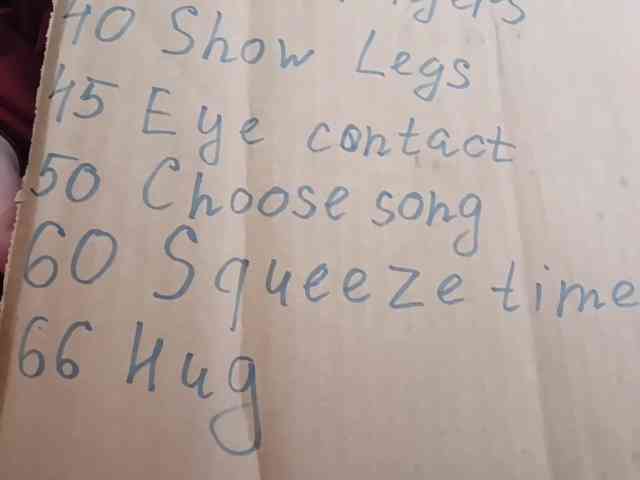 40 Show Legs
45 Eye contact
50 Choose song
60 Squeeze time
66 Hug